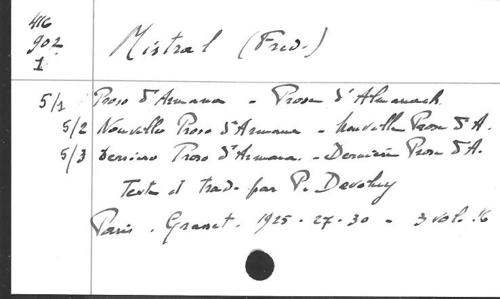 416
902
1
Mistral (Fred.)
5/1 Proso d'Armana - Prose d'Almanach.
5/2 Nouvello Proso d'Armana - Nouvelle Prose d'A.
5/3 Derniero Proso d'Armana. - Dernière Prose d'A.
Texte et trad. par P. Devoluy
Paris. Grasset. 1925-27-30 - 3 vol. 16